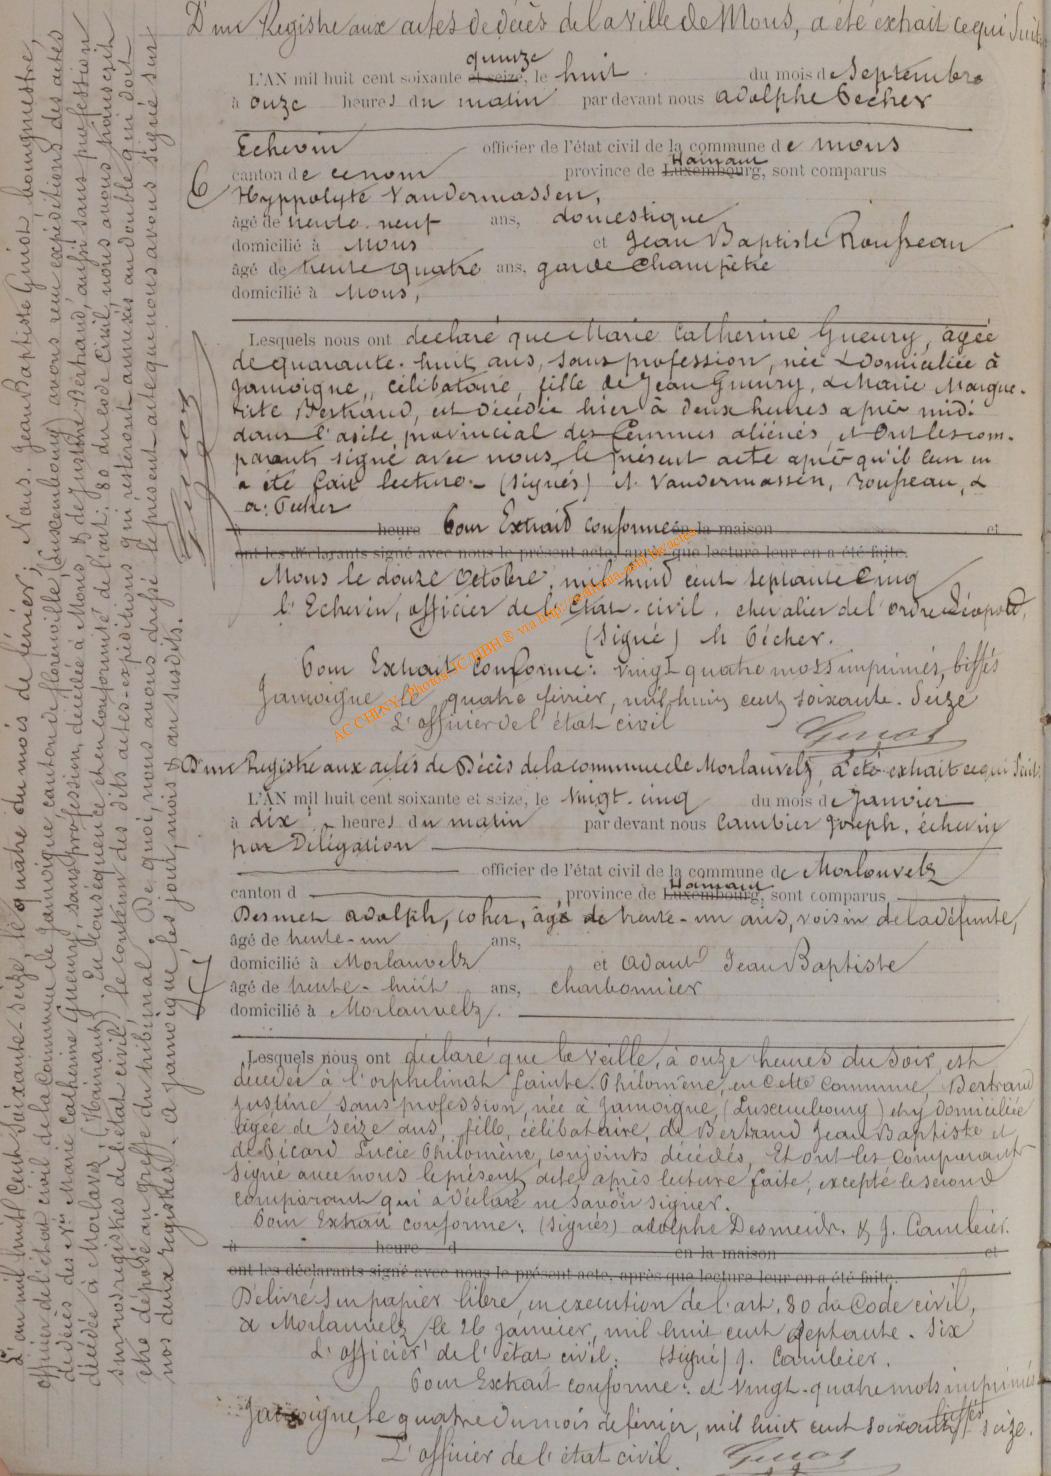 D'un Registre aux actes de décès de la ville de Mons, a été extrait ce qui suit
quinze
L'AN mil huit cent soixante et seize, le huit du mois de Septembre
à onze heures du matin par devant nous Adolphe Pécher
Echevin officier de l'état civil de la commune de Mons
Hainaut
canton de ce nom province de Luxembourg, sont comparus
6 Hyppolyte Vandermassen,
âgé de trente-neuf ans, domestique
domicilié à Mons et Jean Baptiste Rousseau
âgé de trente quatre ans, garde champêtre
domicilié à Mons,
Lesquels nous ont déclaré que Marie Catherine Gueury, âgée
de quarante-huit ans, sans profession, née & domiciliée à
Jamoigne, célibataire, fille de Jean Gueury, & Marie Margue-
rite Bertrand, est décédée hier à deux heures après midi
dans l'asile provincial des femmes aliénés, et ont les com-
parants signé avec nous le présent acte après qu'il leur en
a été fait lecture. (Signés) H. Vandermassen, Rousseau, &
A. Pécher
à heure Pour Extrait conforme en la maison et
ont les déclarants signé avec nous le présent acte, après que lecture leur en a été faite.
Mons le douze Octobre, mil huit cent septante cinq
l'Echevin, officier de l'Etat-civil, chevalier de l'ordre Léopold,
(Signé) Pécher.
Pour Extrait conforme: vingt quatre mots imprimés, biffés
Jamoigne le quatre février, mil huit cent soixante-seize
L'officier de l'état civil
Guiot
AC CHINY - Photos SC HBH ® via http://
D'un Registre aux actes de Décès de la commune de Morlanwelz, a été extrait ce qui suit:
L'AN mil huit cent soixante et seize, le vingt-cinq du mois de Janvier
à dix heures du matin par devant nous Cambier Joseph, échevin
par Délégation
officier de l'état civil de la commune de Morlanwelz
Hainaut
canton d province de Luxembourg, sont comparus
Desmet Adolph, cocher, âgé de trente-un ans, voisin de la défunte,
7 âgé de trente-un ans,
domicilié à Morlanwelz et Adant Jean Baptiste
âgé de trente-huit ans, charbonnier
domicilié à Morlanwelz.
Lesquels nous ont déclaré que la veille, à onze heures du soir, est
décédée à l'orphelinat Sainte-Philomène, en cette commune, Bertrand
Justine sans profession, née à Jamoigne, (Luxembourg) et y domiciliée
âgée de seize ans, fille, célibataire, de Bertrand Jean Baptiste et
de Picard Lucie Philomène, conjoints décédés, Et ont les comparants
signé avec nous le présent acte, après lecture faite, excepté le second
comparant qui a déclaré ne savoir signer.
Pour Extrait conforme: (Signés) Adolphe & J. Cambier.
à heure d en la maison et
ont les déclarants signé avec nous le présent acte, après que lecture leur en a été faite.
Délivré sur papier libre, en exécution de l'art. 80 du Code civil,
à Morlanwelz le 26 janvier, mil huit cent septante-six
L'officier de l'état civil: (Signé) J. Cambier.
Pour Extrait conforme: et vingt-quatre mots imprimés
biffés
Jamoigne, le quatre du mois de février, mil huit cent soixante seize.
L'officier de l'état civil.
Guiot
L'an mil huit cent soixante-seize, le quatre du mois de février; Nous, Jean Baptiste Guiot bourgmestre,
officier de l'état civil de la commune de Jamoigne canton de Florenville, (Luxembourg) avons reçu expéditions des actes
de décès des nés Marie Catherine Gueury, sans profession, décédée à Mons, & de Justine Bertrand, aussi sans profession
décédée à Morlanwelz, (Hainaut). En conséquence et en conformité de l'art. 80 du code civil, nous avons transcrit
sur nos registres de l'état civil, le contenu des dits actes-expéditions qui resteront annexés au double qui doit
être déposé au greffe du tribunal. De quoi, nous avons dressé le présent acte que nous avons signé sur
nos deux registres. A Jamoigne, les jour, mois & an susdits.
Guiot